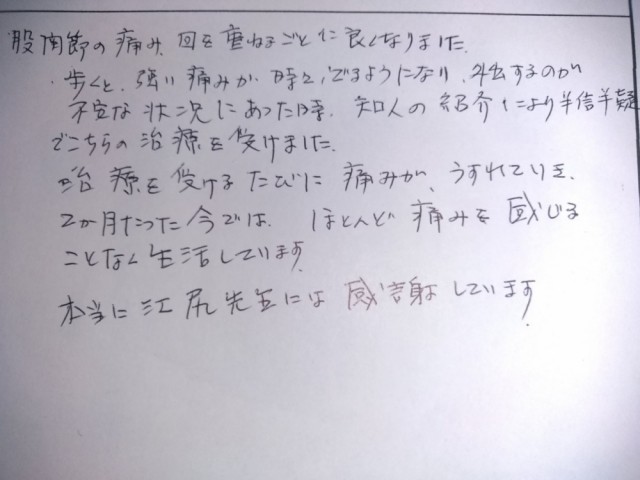 股関節の痛み、回を重ねるごとに良くなりました。
歩くと、強い痛みが時々でるようになり、外出するのが
不安な状況にあった時、知人の紹介により半信半疑
でこちらの治療を受けました。
治療を受けるたびに痛みが、うすれていき、
2か月たった今では、ほとんど痛みを感じる
ことなく生活しています。
本当に江尻先生には感謝しています。